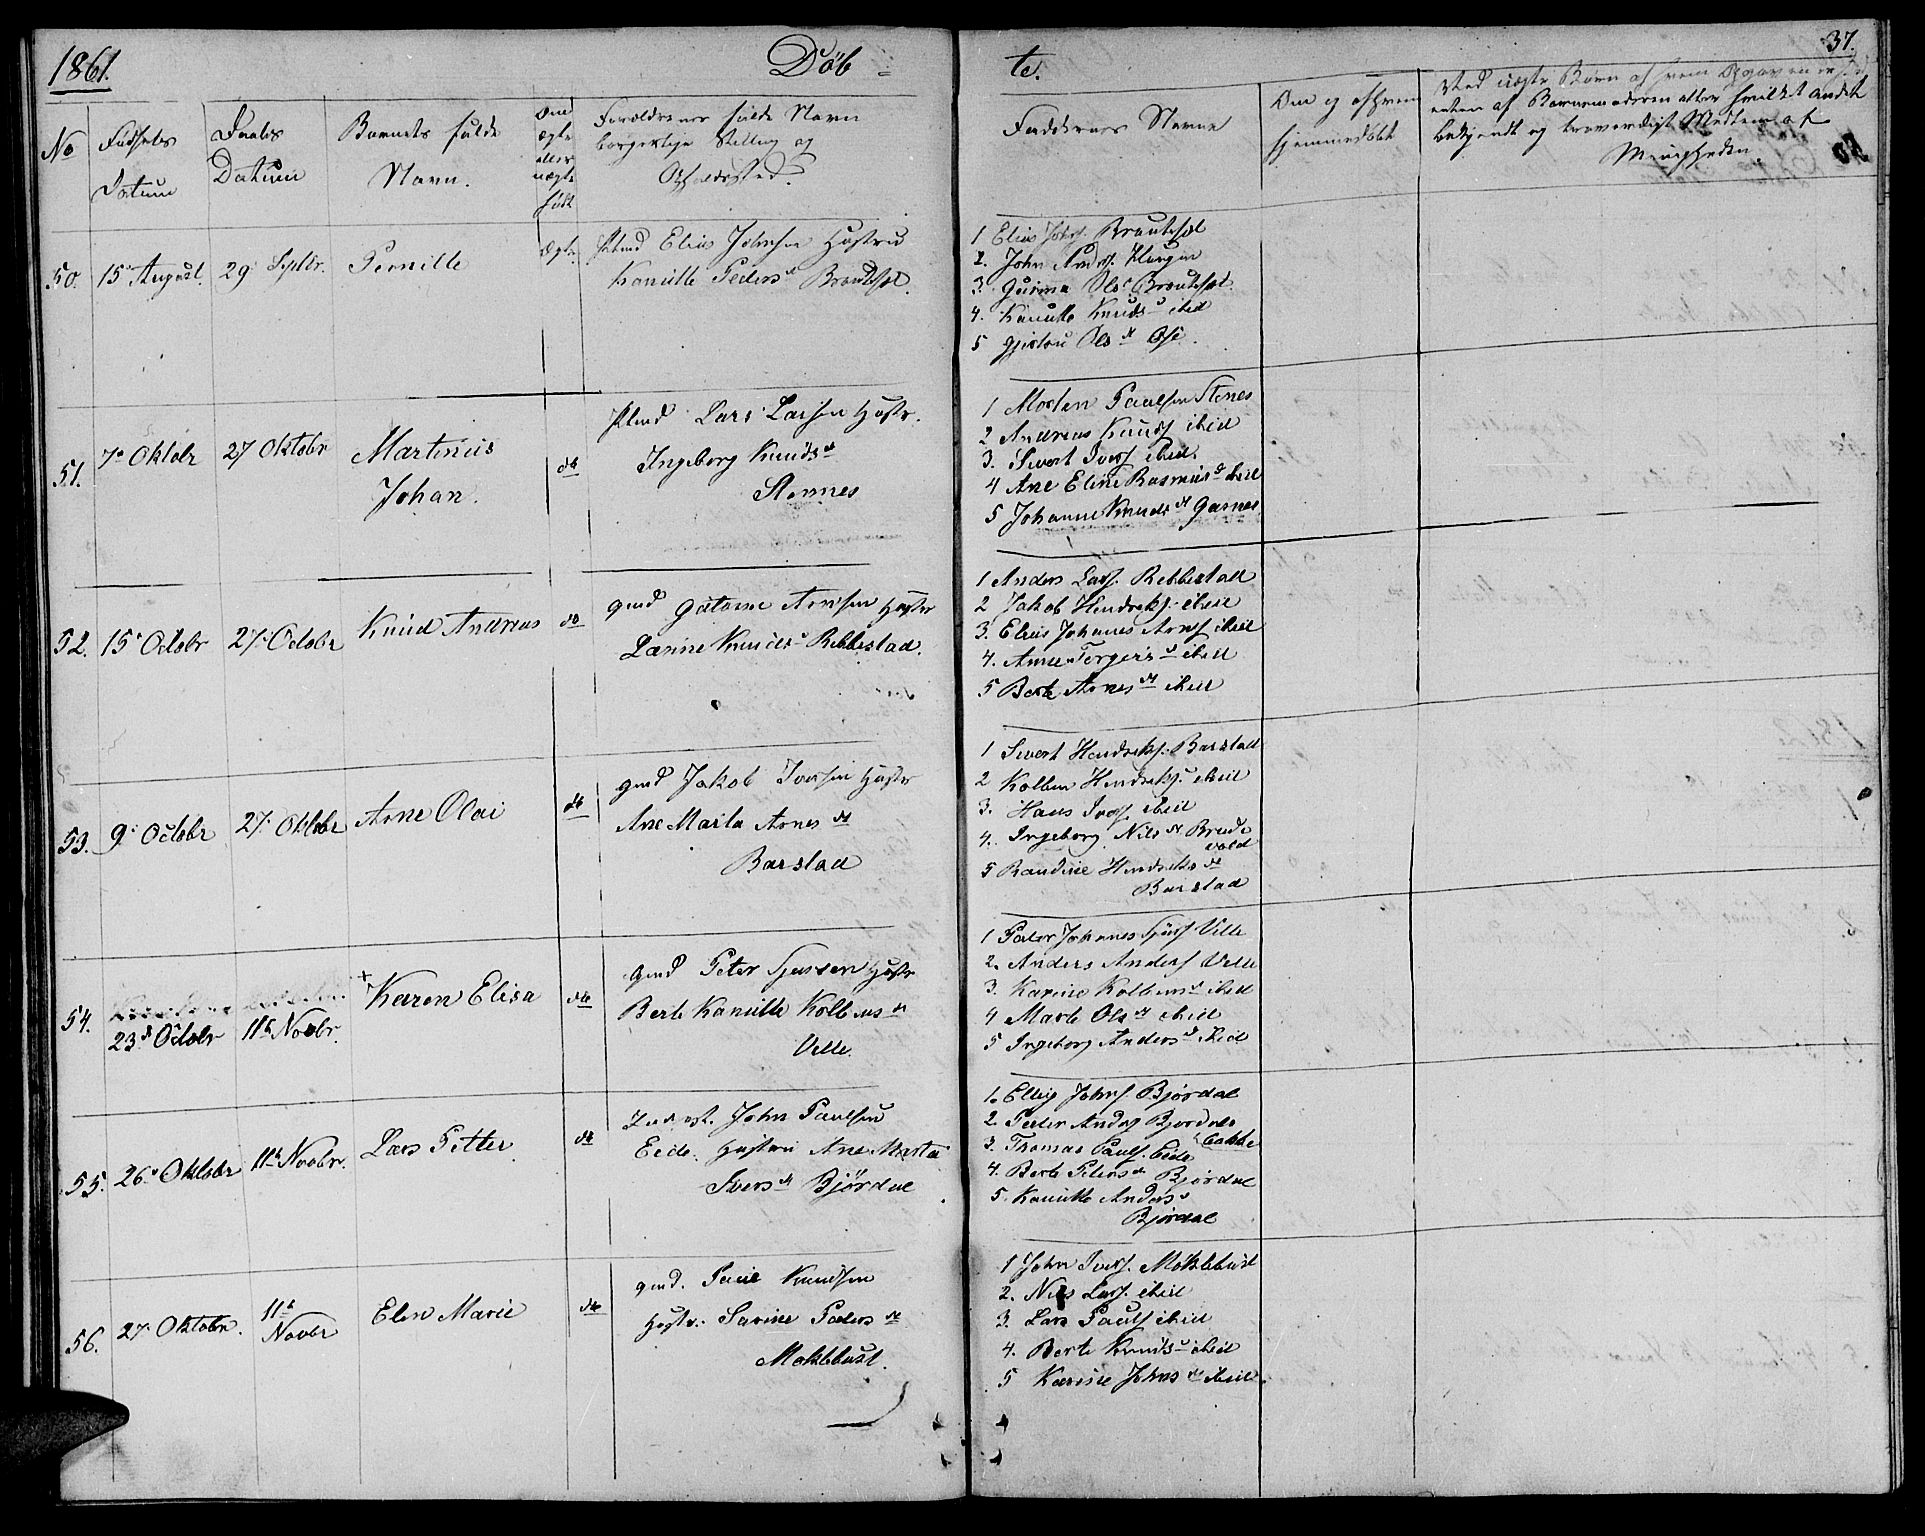 1861.
Döb-
te.
37.
No
Fødsels
Datum
Daabs
Datum
Barnets fulde
Navn.
Om
ægte
eller
uægte
født
Forældrenes fulde Navn
borgerlige Stilling og
Opholdssted.
Faddernes Navne
Om og af hvem
hjemmedøbt
Ved uægte Børn af hvem Opgaven er skeet
enten af Barnemoderen eller hvilket andet
bekjendt og troværdigt Medlem af
Menigheden.
50. 15 August. 29 Septbr. Pernille Ægte
Elias Johnsen Hustru
Kanutte Peders Brautesæt.
1 Elias Johns. Brautesæt
2. John
3. Olsd Brautesæt.
4. Kanutte Knuds ibid
5 Ols d Ose.
51. 7 Oktobr 27 Oktobr Martinus
Johan. do
Lars Larsen Hustr.
Ingeborg Knuds d
Stennes
1 Morten Paulsen Stenes
2 Andreas Knuds ibid
3. Sivert Ivers ibid.
4 Ane Eline Rasmus d ibid
5 Johanne Knuds d Garnes
52. 15 Octobr 27 Octobr Knud Andreas do
gmd Guttorm Arnesen Hustr
Lærine Knuds Rebbestad.
1 Anders Lars. Rebbestad
2 Jakob Hendriks. ibid
3. Elias Johanes Arnes ibid
4. Anne Torgers d ibid
5 Berte Arnes d ibid
53. 9 Octobr 27 Oktobr Arne Olai do
gmd Jakob Iversen Hustr
Ane Marta Arnes d
Barstad
1 Sivert Hendriks. Barstad
2 Kolben Hendriks. ibid
3. Hans Ivers. ibid
4. Ingeborg Nils d Brude
vold
5 Raudine Hendriks d
Barstad
54.
23 d Octobr 11te Novbr. + Karen Elisa do
gmd Peter Sjursen Hustr
Berte Kanutte Kolbens d
Velle.
1 Peder Johannes Sjurs Velle
2. Anders Anders Velle
3. Karine Kolbens d ibid
4 Marte Ols d ibid
5 Ingeborg Anders d ibid
55. 26 Oktobr 11te Novbr. Lars Petter do
Inderst. John Paulsen
Eide. Hustru Ane Marta
Ivers d Bjørdal
1. Elling Johns. Bjørdal
2. Peder Anders Bjørdals
bakke
3. Thomas Pauls. Eide
4. Berte Peters d Bjørdal
5. Kanutte Anders
Bjørdal
56. 27 Oktobr. 11te
Novbr Elen Marie do
gmd. Paul Knudsen
Hustr. Sarine Peders d
Møklebust.
1 John Ivers. Møklebust
2. Nils Lars. ibid
3. Lars Pauls ibid
4. Berte Knuds ibid
5 Karine Johns d ibid.